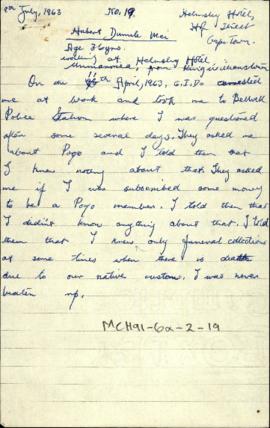 July, 1963
No. 19.
Helmsley Hotel,
Hof Street
Cape Town.
Hubert Dumile Mei
Age 36yrs.
working at Helmsley Hotel
from Kingwilliamstown
On an April, 1963, C.I.Ds arrested
me at work and took me to Bellville
Police Station where I was questioned
after some several days. They asked me
about Poqo and I told them that
I knew nothing about that. They asked
me if I was subscribed some money
to be a Poqo member. I told them that
I didn't know anything about that. I told
them that I knew only funeral collections
at some times when there is death
due to our native custom. I was never
beaten up.
MCH91-6a-2-19